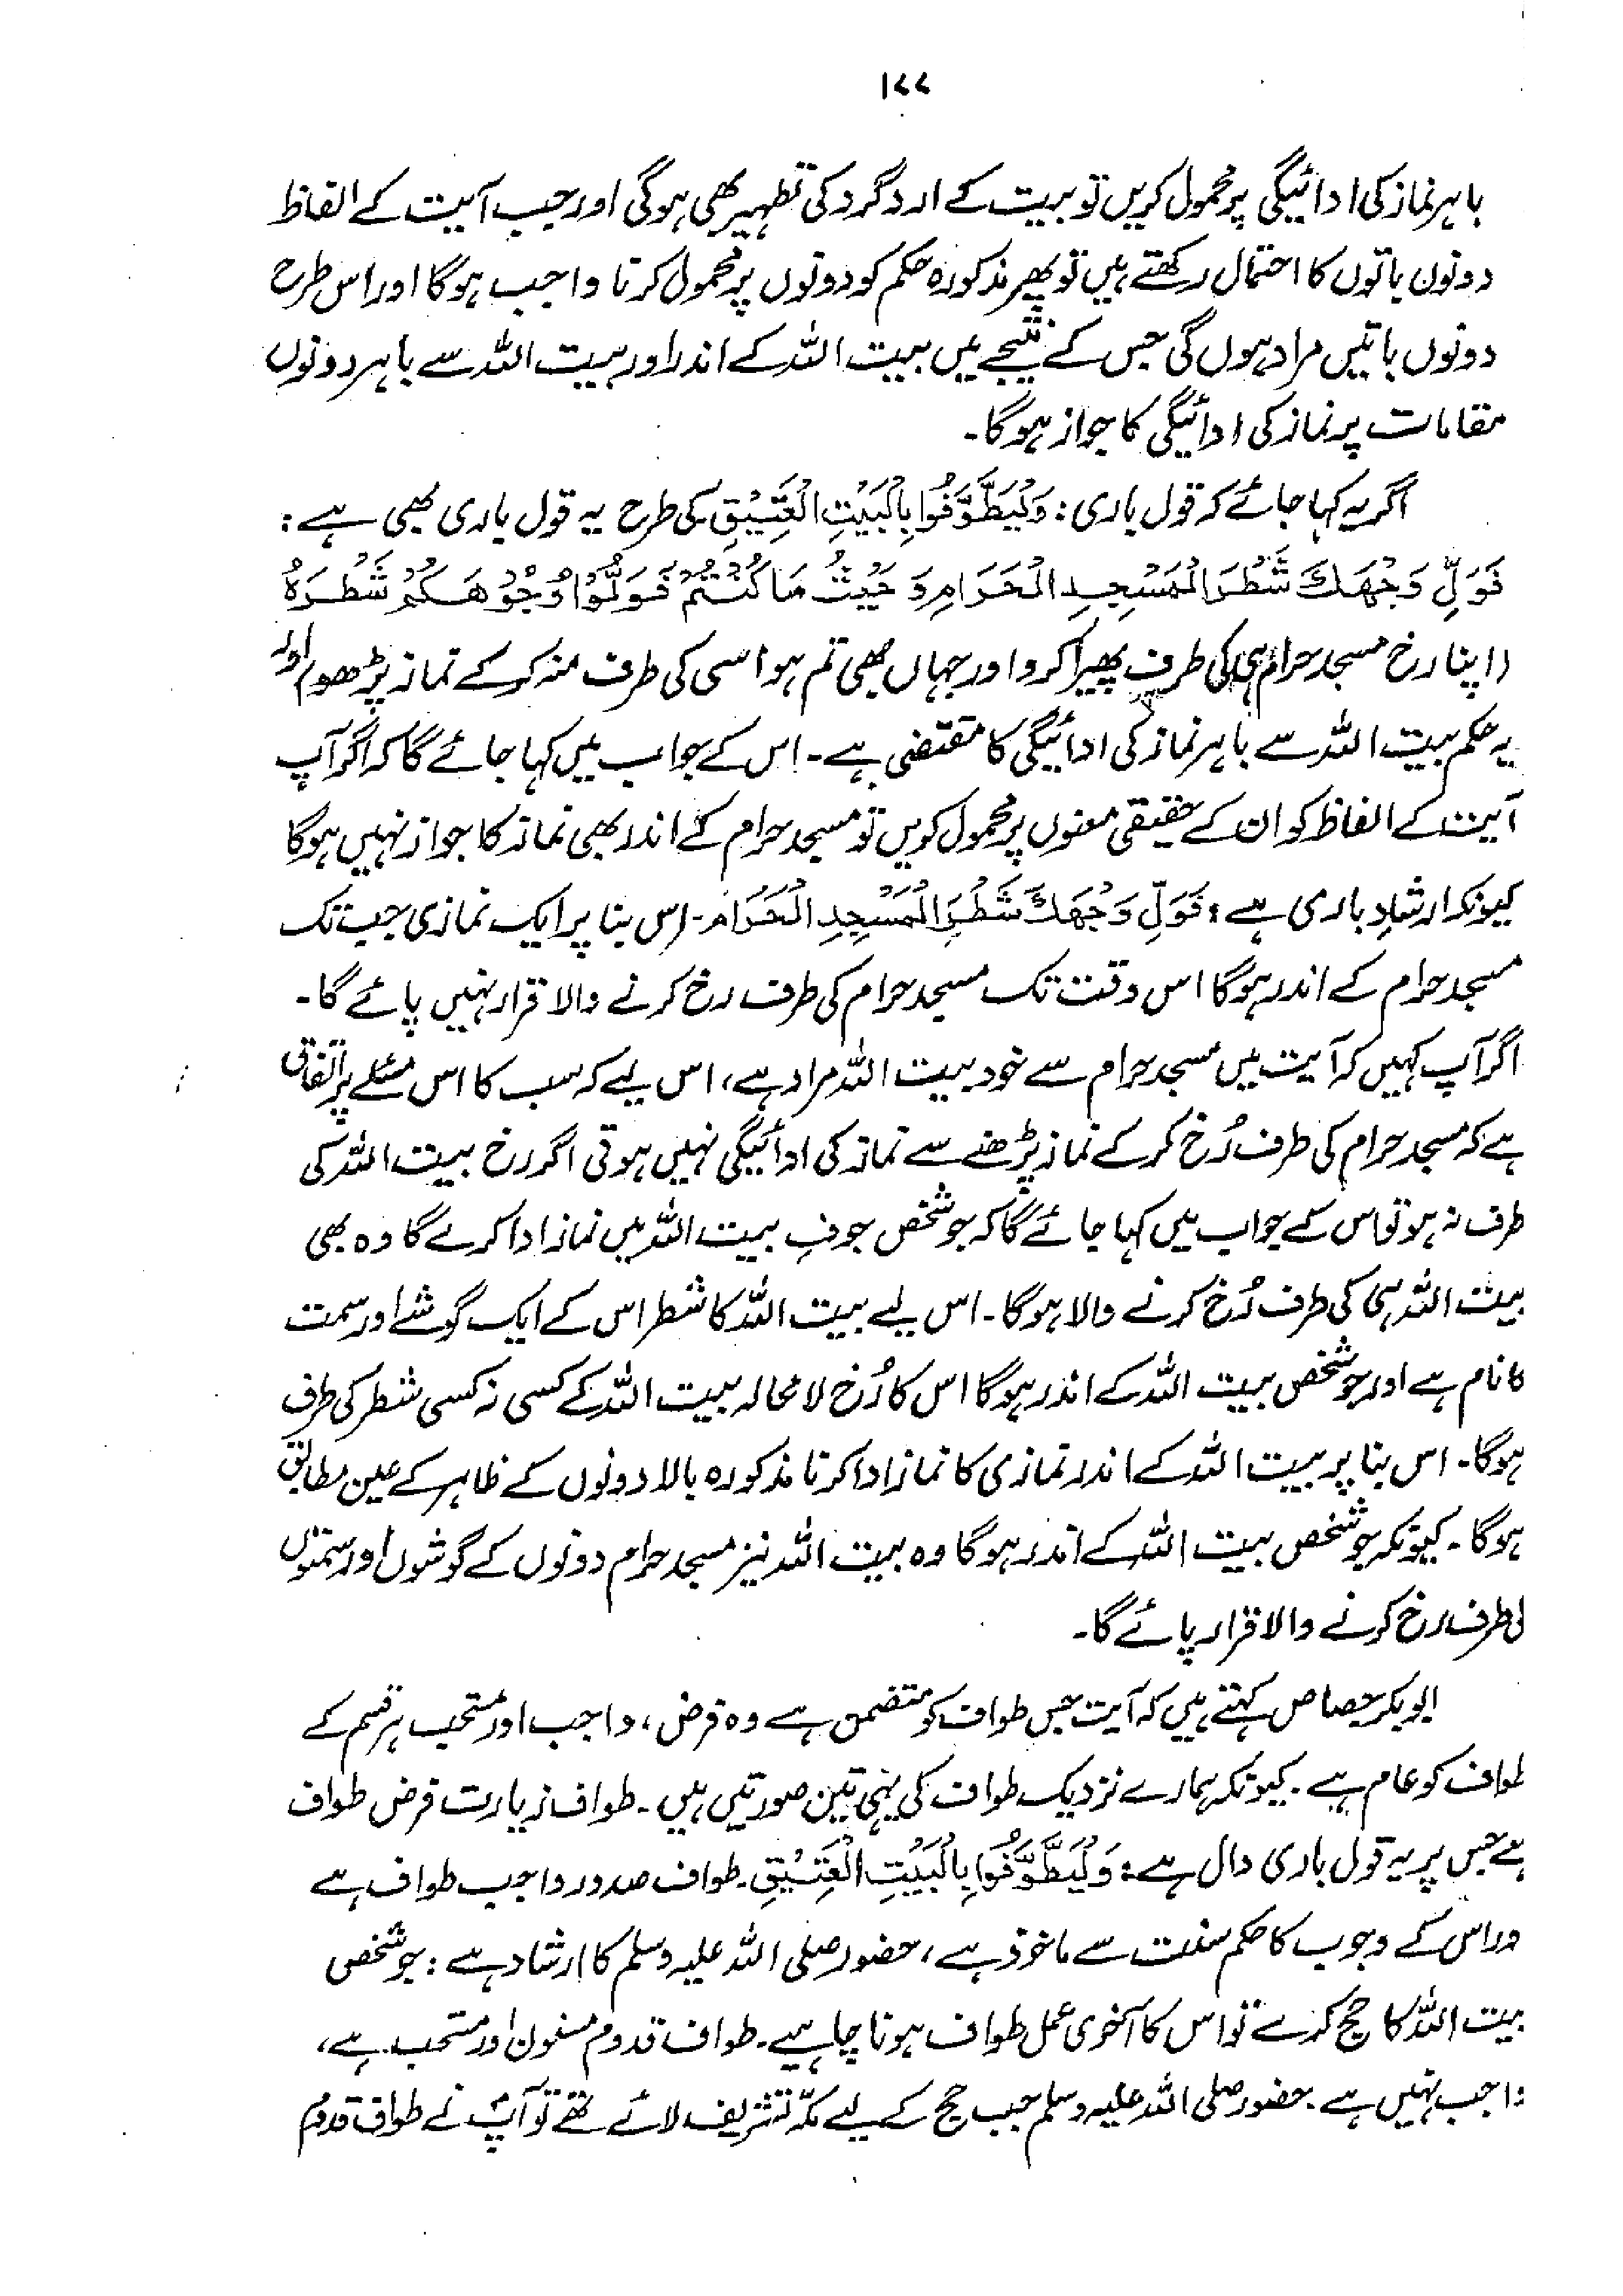 ۱۷۷
باہر نماز کی ادائیگی پر محمول کریں تو بیت کے ارد گرد کی تطہیر بھی ہوگی اور جب آیت کے الفاظ
دونوں باتوں کا احتمال رکھتے ہیں تو پھر مذکورہ حکم کو دونوں پر محمول کرنا واجب ہوگا اور اس طرح
دونوں باتیں مراد ہوں گی جس کے نتیجے میں بیت اللہ کے اندر اور بیت اللہ سے باہر دونوں
مقامات پر نماز کی ادائیگی کا جواز ہوگا۔
اگر یہ کہا جائے کہ قول باری: وَلْيَطَّوَّفُوا بِالْبَيْتِ الْعَتِيْقِ کی طرح یہ قول باری بھی ہے:
فَوَلِّ وَجْهَكَ شَطْرَ الْمَسْجِدِ الْحَرَامِ وَحَيْثُ مَا كُنْتُمْ فَوَلُّوْا وُجُوْهَكُمْ شَطْرَهُ
(اپنا رخ مسجد حرام ہی کی طرف پھیرا کرو اور جہاں بھی تم ہو اسی کی طرف منہ کر کے نماز پڑھو) اور
یہ حکم بیت اللہ سے باہر نماز کی ادائیگی کا مقتضی ہے۔ اس کے جواب میں کہا جائے گا کہ اگر آپ
آیت کے الفاظ کو ان کے حقیقی معنوں پر محمول کریں تو مسجد حرام کے اندر بھی نماز کا جواز نہیں ہوگا
کیونکہ ارشاد باری ہے: فَوَلِّ وَجْهَكَ شَطْرَ الْمَسْجِدِ الْحَرَامِ۔ اس بنا پر ایک نمازی جب تک
مسجد حرام کے اندر ہوگا اس وقت تک مسجد حرام کی طرف رخ کرنے والا قرار نہیں پائے گا۔
اگر آپ کہیں کہ آیت میں مسجد حرام سے خود بیت اللہ مراد ہے، اس لیے کہ سب کا اس مسئلے پر اتفاق
ہے کہ مسجد حرام کی طرف رُخ کر کے نماز پڑھنے سے نماز کی ادائیگی نہیں ہوتی اگر رخ بیت اللہ کی
طرف نہ ہو تو اس کے جواب میں کہا جائے گا کہ جو شخص جوفِ بیت اللہ میں نماز ادا کرے گا وہ بھی
بیت اللہ ہی کی طرف رُخ کرنے والا ہوگا۔ اس لیے بیت اللہ کا شطر اس کے ایک گوشے اور سمت
کا نام ہے اور جو شخص بیت اللہ کے اندر ہوگا اس کا رُخ لا محالہ بیت اللہ کے کسی نہ کسی شطر کی طرف
ہوگا۔ اس بنا پر بیت اللہ کے اندر نمازی کا نماز ادا کرنا مذکورہ بالا دونوں کے ظاہر کے عین مطابق
ہوگا۔ کیونکہ جو شخص بیت اللہ کے اندر ہوگا وہ بیت اللہ نیز مسجد حرام دونوں کے گوشوں اور سمتوں
کی طرف رخ کرنے والا قرار پائے گا۔
ابو بکر جصاص کہتے ہیں کہ آیت جس طواف کو متضمن ہے وہ فرض، واجب اور مستحب ہر قسم کے
طواف کو عام ہے۔ کیونکہ ہمارے نزدیک طواف کی یہی تین صورتیں ہیں۔ طواف زیارت فرض طواف
ہے جس پر یہ قول باری دال ہے: وَلْيَطَّوَّفُوا بِالْبَيْتِ الْعَتِيْقِ۔ طواف صدور واجب طواف ہے
اور اس کے وجوب کا حکم سنت سے ماخوذ ہے، حضور صلی اللہ علیہ وسلم کا ارشاد ہے: جو شخص
بیت اللہ کا حج کرے تو اس کا آخری عمل طواف ہونا چاہیے۔ طواف قدوم مسنون اور مستحب ہے،
واجب نہیں ہے۔ حضور صلی اللہ علیہ وسلم جب حج کے لیے مکہ تشریف لائے تھے تو آپؐ نے طواف قدوم